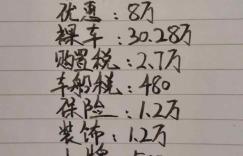 优惠：8万
裸车：30.28万
购置税：2.7万
车船税：480
保险：1.2万
装饰：1.2万